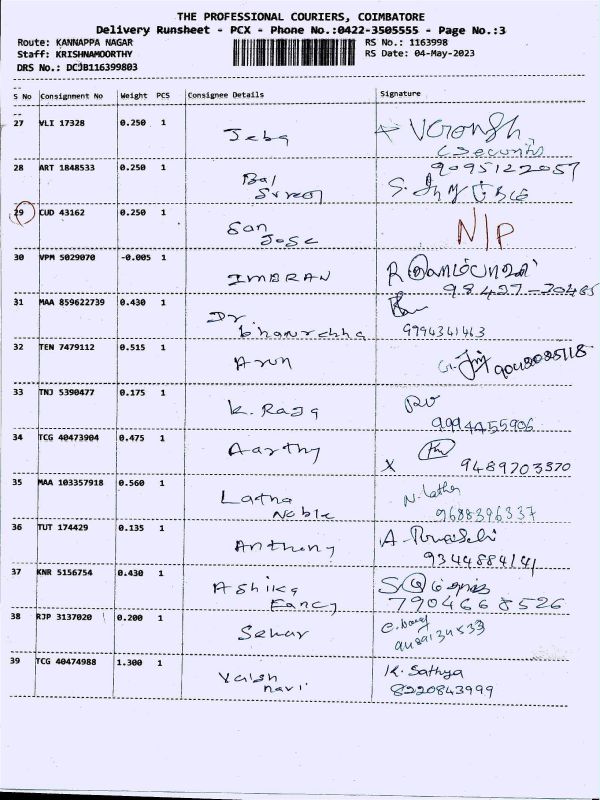 THE PROFESSIONAL COURIERS, COIMBATORE
Delivery Runsheet - PCX - Phone No.:0422-3505555 - Page No.:3
Route: KANNAPPA NAGAR RS No.: 1163998
Staff: KRISHNAMOORTHY RS Date: 04-May-2023
DRS No.: DCJB116399803
S No Consignment No Weight PCS Consignee Details Signature
27 VLI 17328 0.250 1 Jeba
28 ART 1848533 0.250 1 Bal 9095122057
29 CUD 43162 0.250 1 San N/P
Jose
30 VPM 5029070 -0.005 1 IMBRAN
98437-30485
31 MAA 859622739 0.430 1 Dr
9994341463
32 TEN 7479112 0.515 1 Arun
33 TNJ 5390477 0.175 1 K. Raja
9994455906
34 TCG 40473904 0.475 1 Aarthy
X 9489703570
35 MAA 103357918 0.560 1 Latha N. Latha
Noble 9688396337
36 TUT 174429 0.135 1 Anthony
9344884141
37 KNR 5156754 0.430 1 Ashika
Fancy 7904668526
38 RJP 3137020 0.200 1 Sekar
39 TCG 40474988 1.300 1 Vaish K. Sathya
navi 8220843999